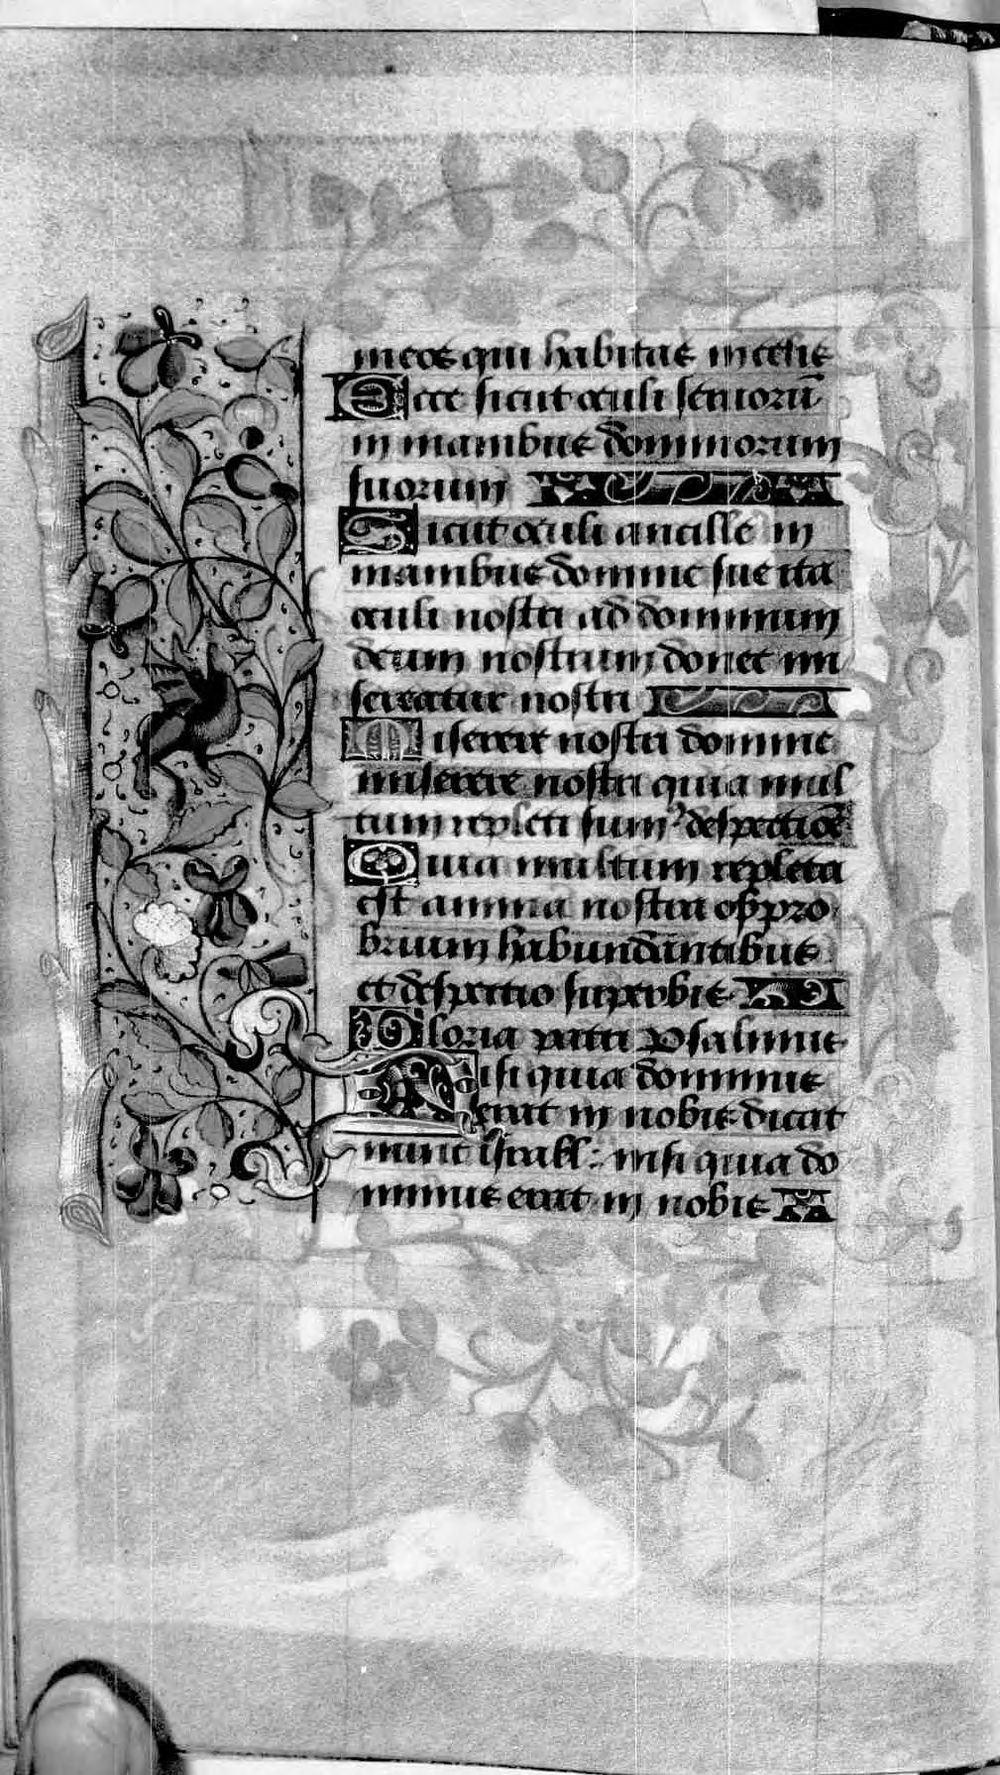 meos qui habitas in celis
Ecce sicut oculi servorū
in manibus dominorum
suorum
Sicut oculi ancille in
manibus domine sue ita
oculi nostri ad dominum
deum nostrum donec mi
sereatur nostri
Miserere nostri domine
miserere nostri quia mul
tum repleti sumꝰ despectiōe
Quia multum repleta
est anima nostra obpro
brium habundantibus
et despectio superbis
Gloria patri Psalmus
Nisi quia dominus
erat in nobis dicat
nunc israhl : nisi quia do
minus erat in nobis